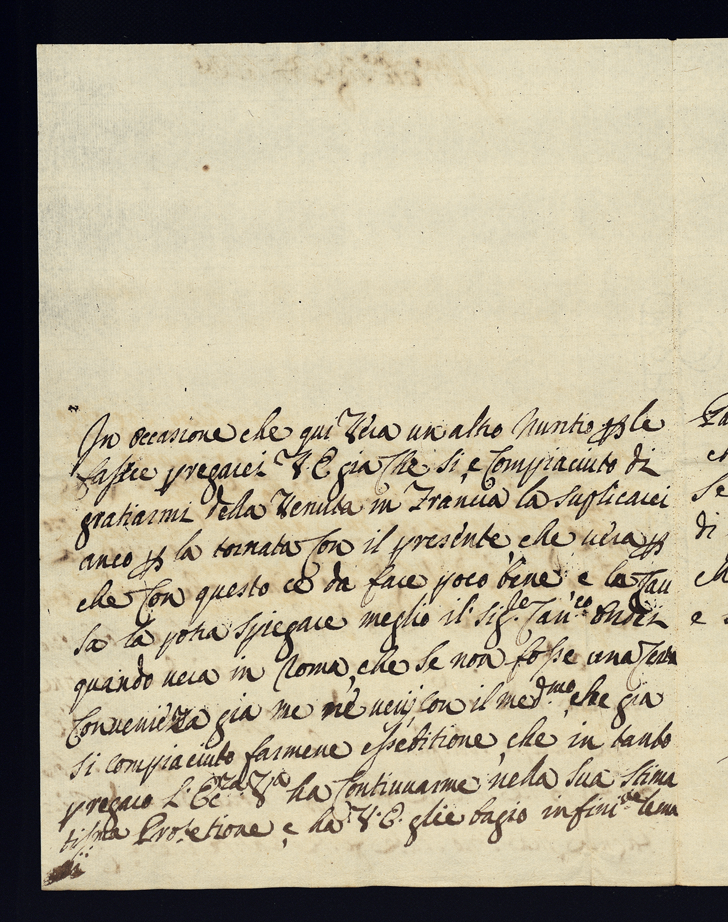 In occasione che qui Vera un altro Nuntio ꝑ le
fasce pregarei V. E. gia Che si e Compiaciuto di
gratiarmi della Venuta in Francia la suplicarei
anco ꝑ la tornata Con il presente che vera ꝑ
che Con questo ce da fare poco bene e la Cau
sa la potra spiegare meglio il Sig.re
quando vera in Roma, che se non fosse una Certa
Convenienza gia me ne veni Con il med.mo che gia
si compiaciuto farmene essebitione, che in tanto
pregaro L'Ec.za V.a ha Continuarme nella sua stima
tiss.ma Protetione e ha V. E. glie bagio